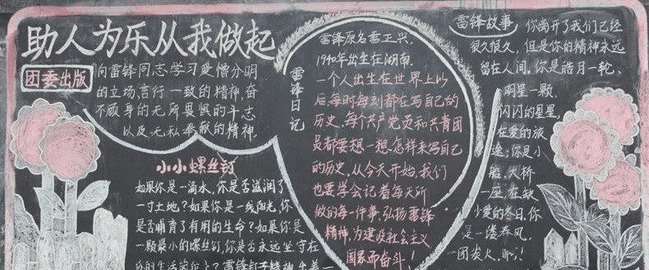 助人为乐从我做起
团委出版
向雷锋同志学习爱憎分明
的立场言行一致的精神,奋
不顾身的无所畏惧的斗志
以及无私奉献的精神.
小小螺丝钉
如果你是一滴水,你是否滋润了
一寸土地?如果你是一线阳光,你
是否哺育了有用的生命?如果你是
一颗最小的螺丝钉,你是否永远坚守在
雷锋日记
雷锋原名雷正兴,
1940年出生在湖南.
一个人出生在世界上以
后每时每刻都在写自己的
历史,每个共产党员和共青团
员都要想一想,怎样来写自己
的历史,从今天开始,我们
也要学会记着每天所
做的每一件事,弘扬雷锋
精神,为建设社会主义
国家而奋斗!
雷锋故事
你离开了我们已经
很久很久,但是你的精神永远
留在人间.你是皓月一轮,
明星一颗,
闪闪的星星,
在爱的旅
途;你是小
船,大桥
一座,在缺
少爱的冬日,你
是一缕春风,
一团炭火,啊!